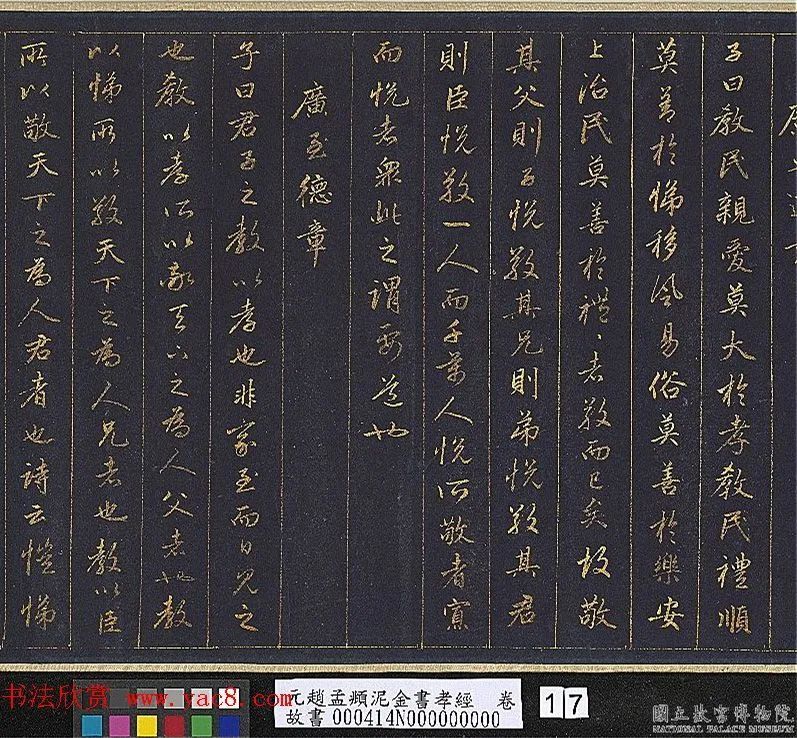 子曰教民親愛莫大於孝教民禮順
莫善於悌移風易俗莫善於樂安
上治民莫善於禮〻者敬而已矣故敬
其父則子悅敬其兄則弟悅敬其君
則臣悅敬一人而千萬人悅所敬者寡
而悅者眾此之謂要道也
廣至德章
子曰君子之教以孝也非家至而日見之
也教以孝所以敬天下之為人父者也教
以悌所以敬天下之為人兄者也教以臣
所以敬天下之為人君者也詩云愷悌
书法欣赏 www.yac8.com
元趙孟頫泥金書孝經 卷
故書000414N000000000
17
國立故宮博物院
NATIONAL PALACE MUSEUM